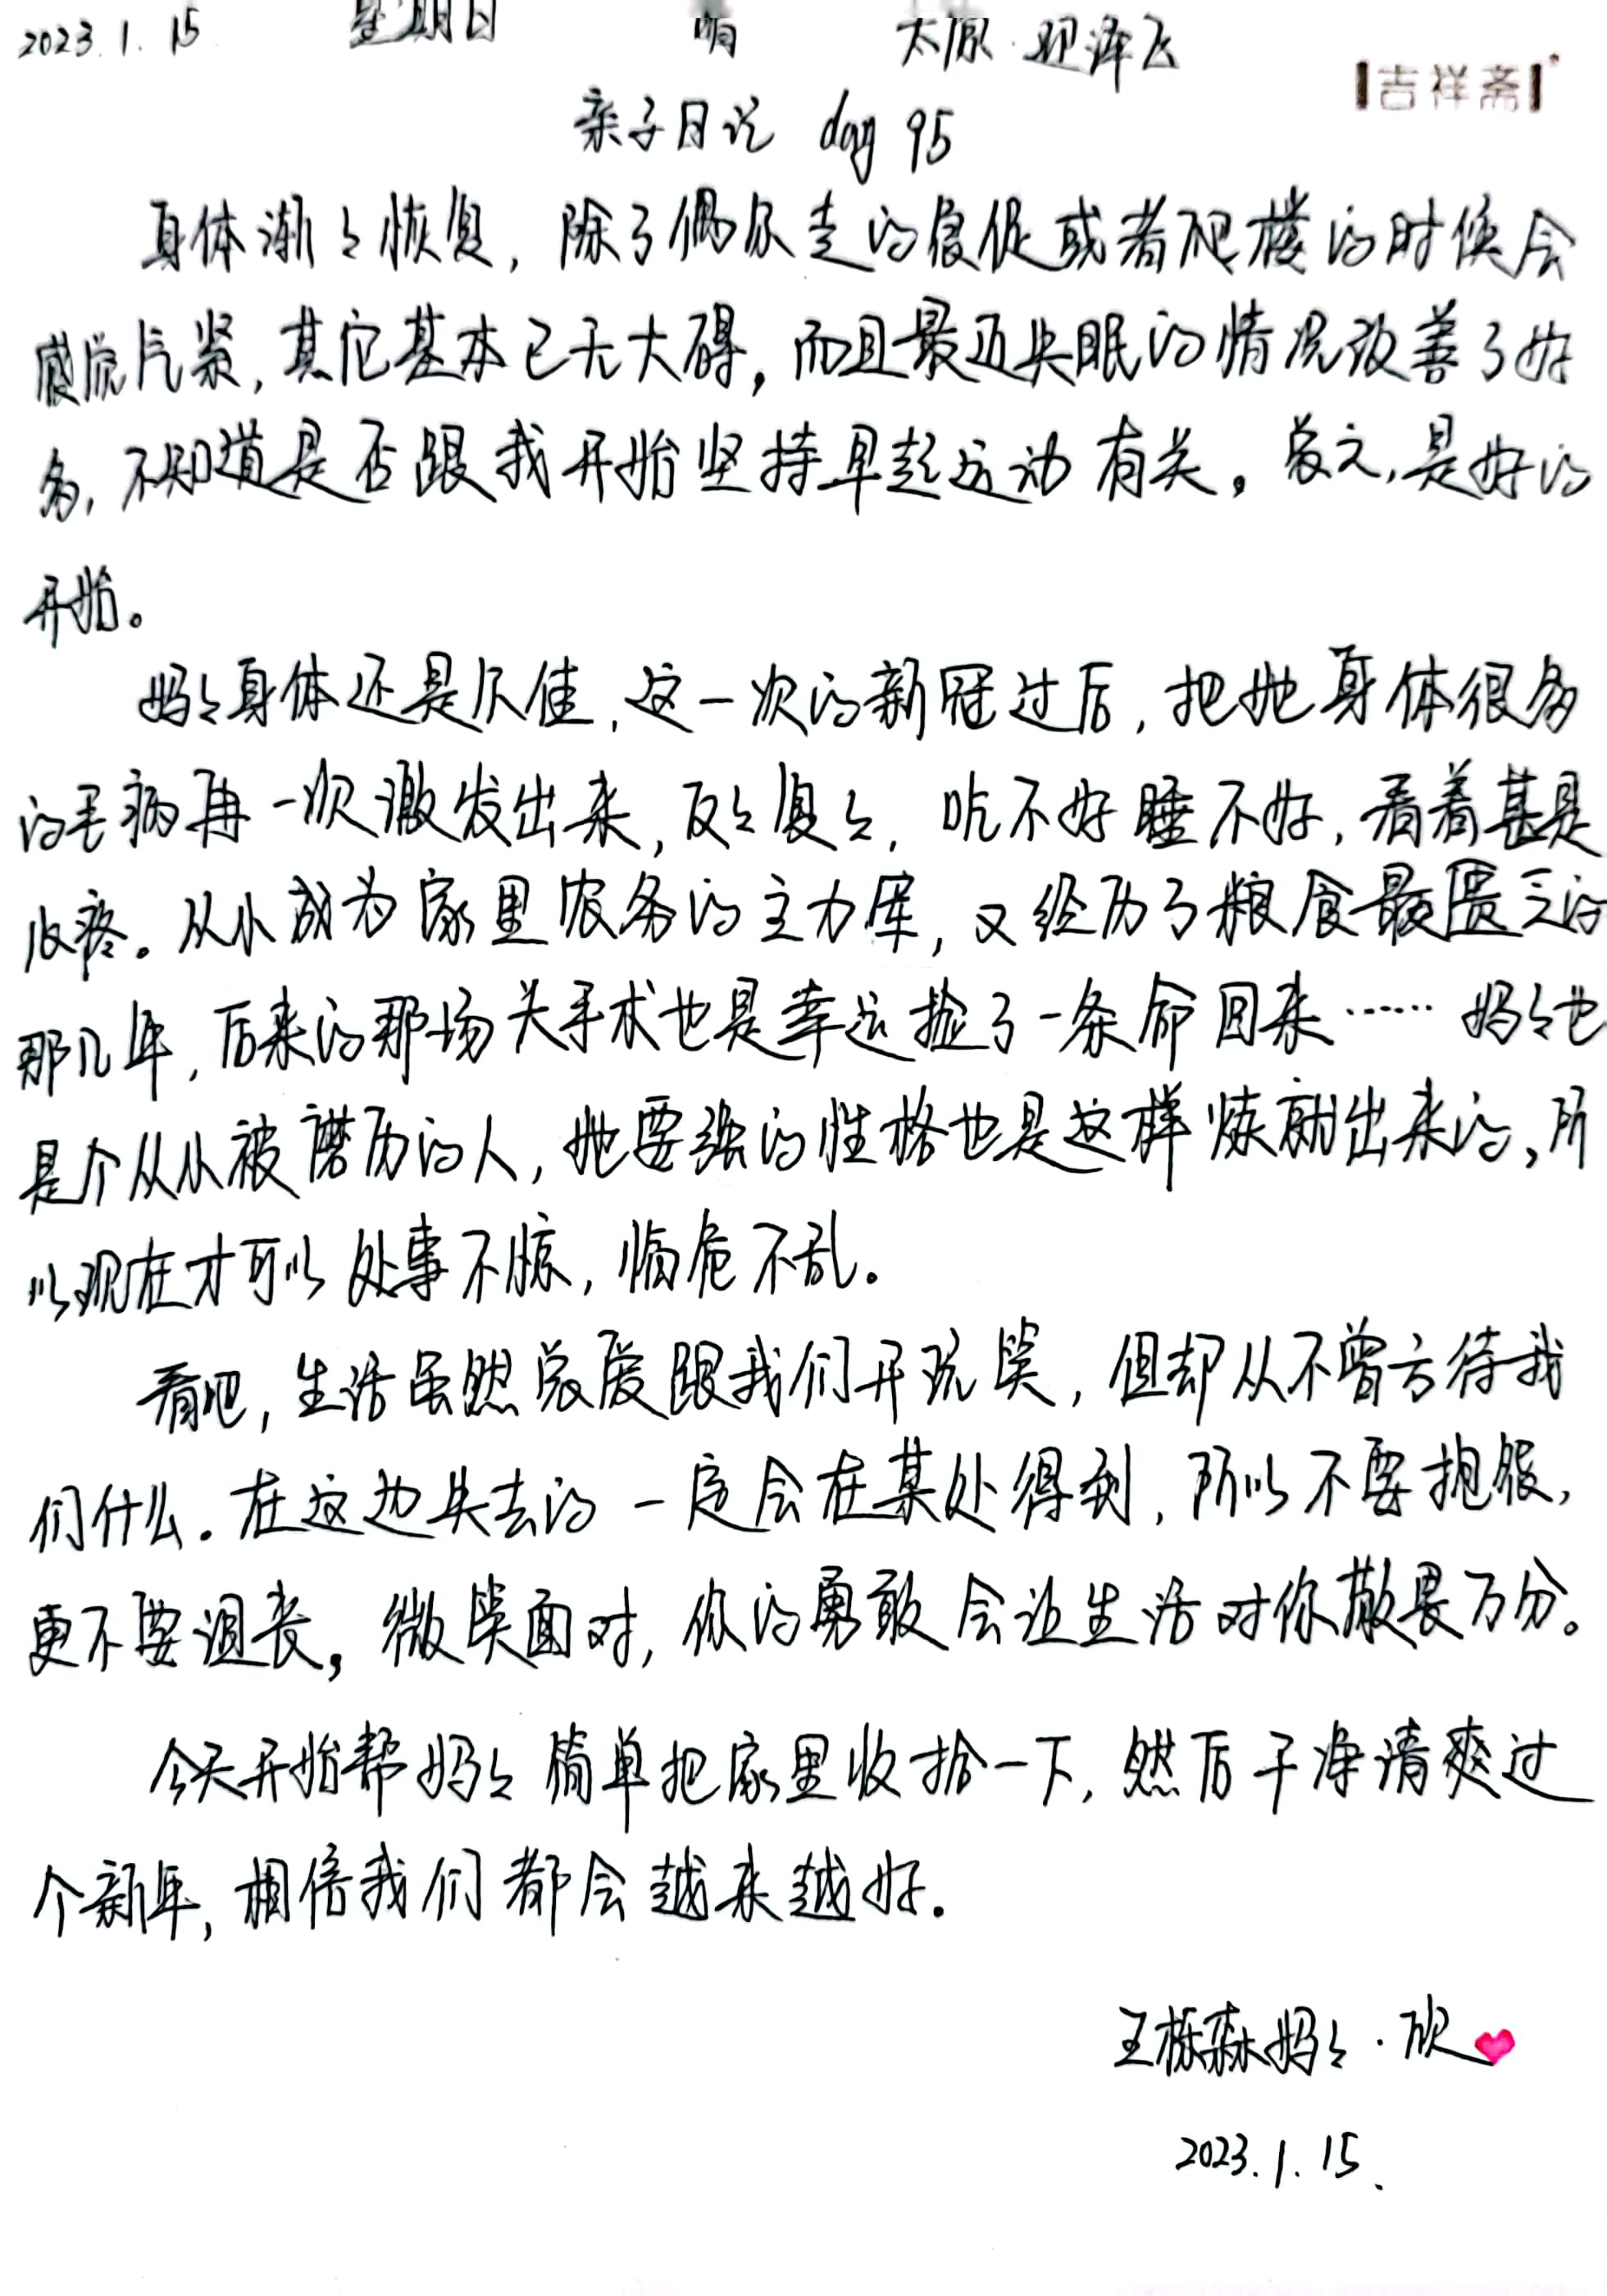 2023.1.15 星期日 晴 太原·迎泽
吉祥斋
亲子日记 day 95
身体渐々恢复，除了偶尔走的急促或者爬楼的时候会
感觉气紧，其它基本已无大碍，而且最近失眠的情况改善了好
多，不知道是否跟我开始坚持早起运动有关。总之，是好的
开始。
妈々身体还是欠佳，这一次的新冠过后，把她身体很多
的毛病再一次激发出来，反々复々，吃不好睡不好，看着甚是
心疼。从小成为家里农务的主力军，又经历了粮食最匮乏的
那几年，后来的那场大手术也是幸运捡了一条命回来……妈々也
是个从小被磨历的人，她要强的性格也是这样炼就出来的，所
以现在才可以处事不惊，临危不乱。
看吧，生活虽然总爱跟我们开玩笑，但却从不曾亏待我
们什么。在这边失去的一定会在某处得到，所以不要抱怨，
更不要沮丧，微笑面对，你的勇敢会让生活对你敬畏万分。
今天开始帮妈々简单把家里收拾一下，然后干净清爽过
个新年，相信我们都会越来越好。
王栎森妈々·欣
2023.1.15.